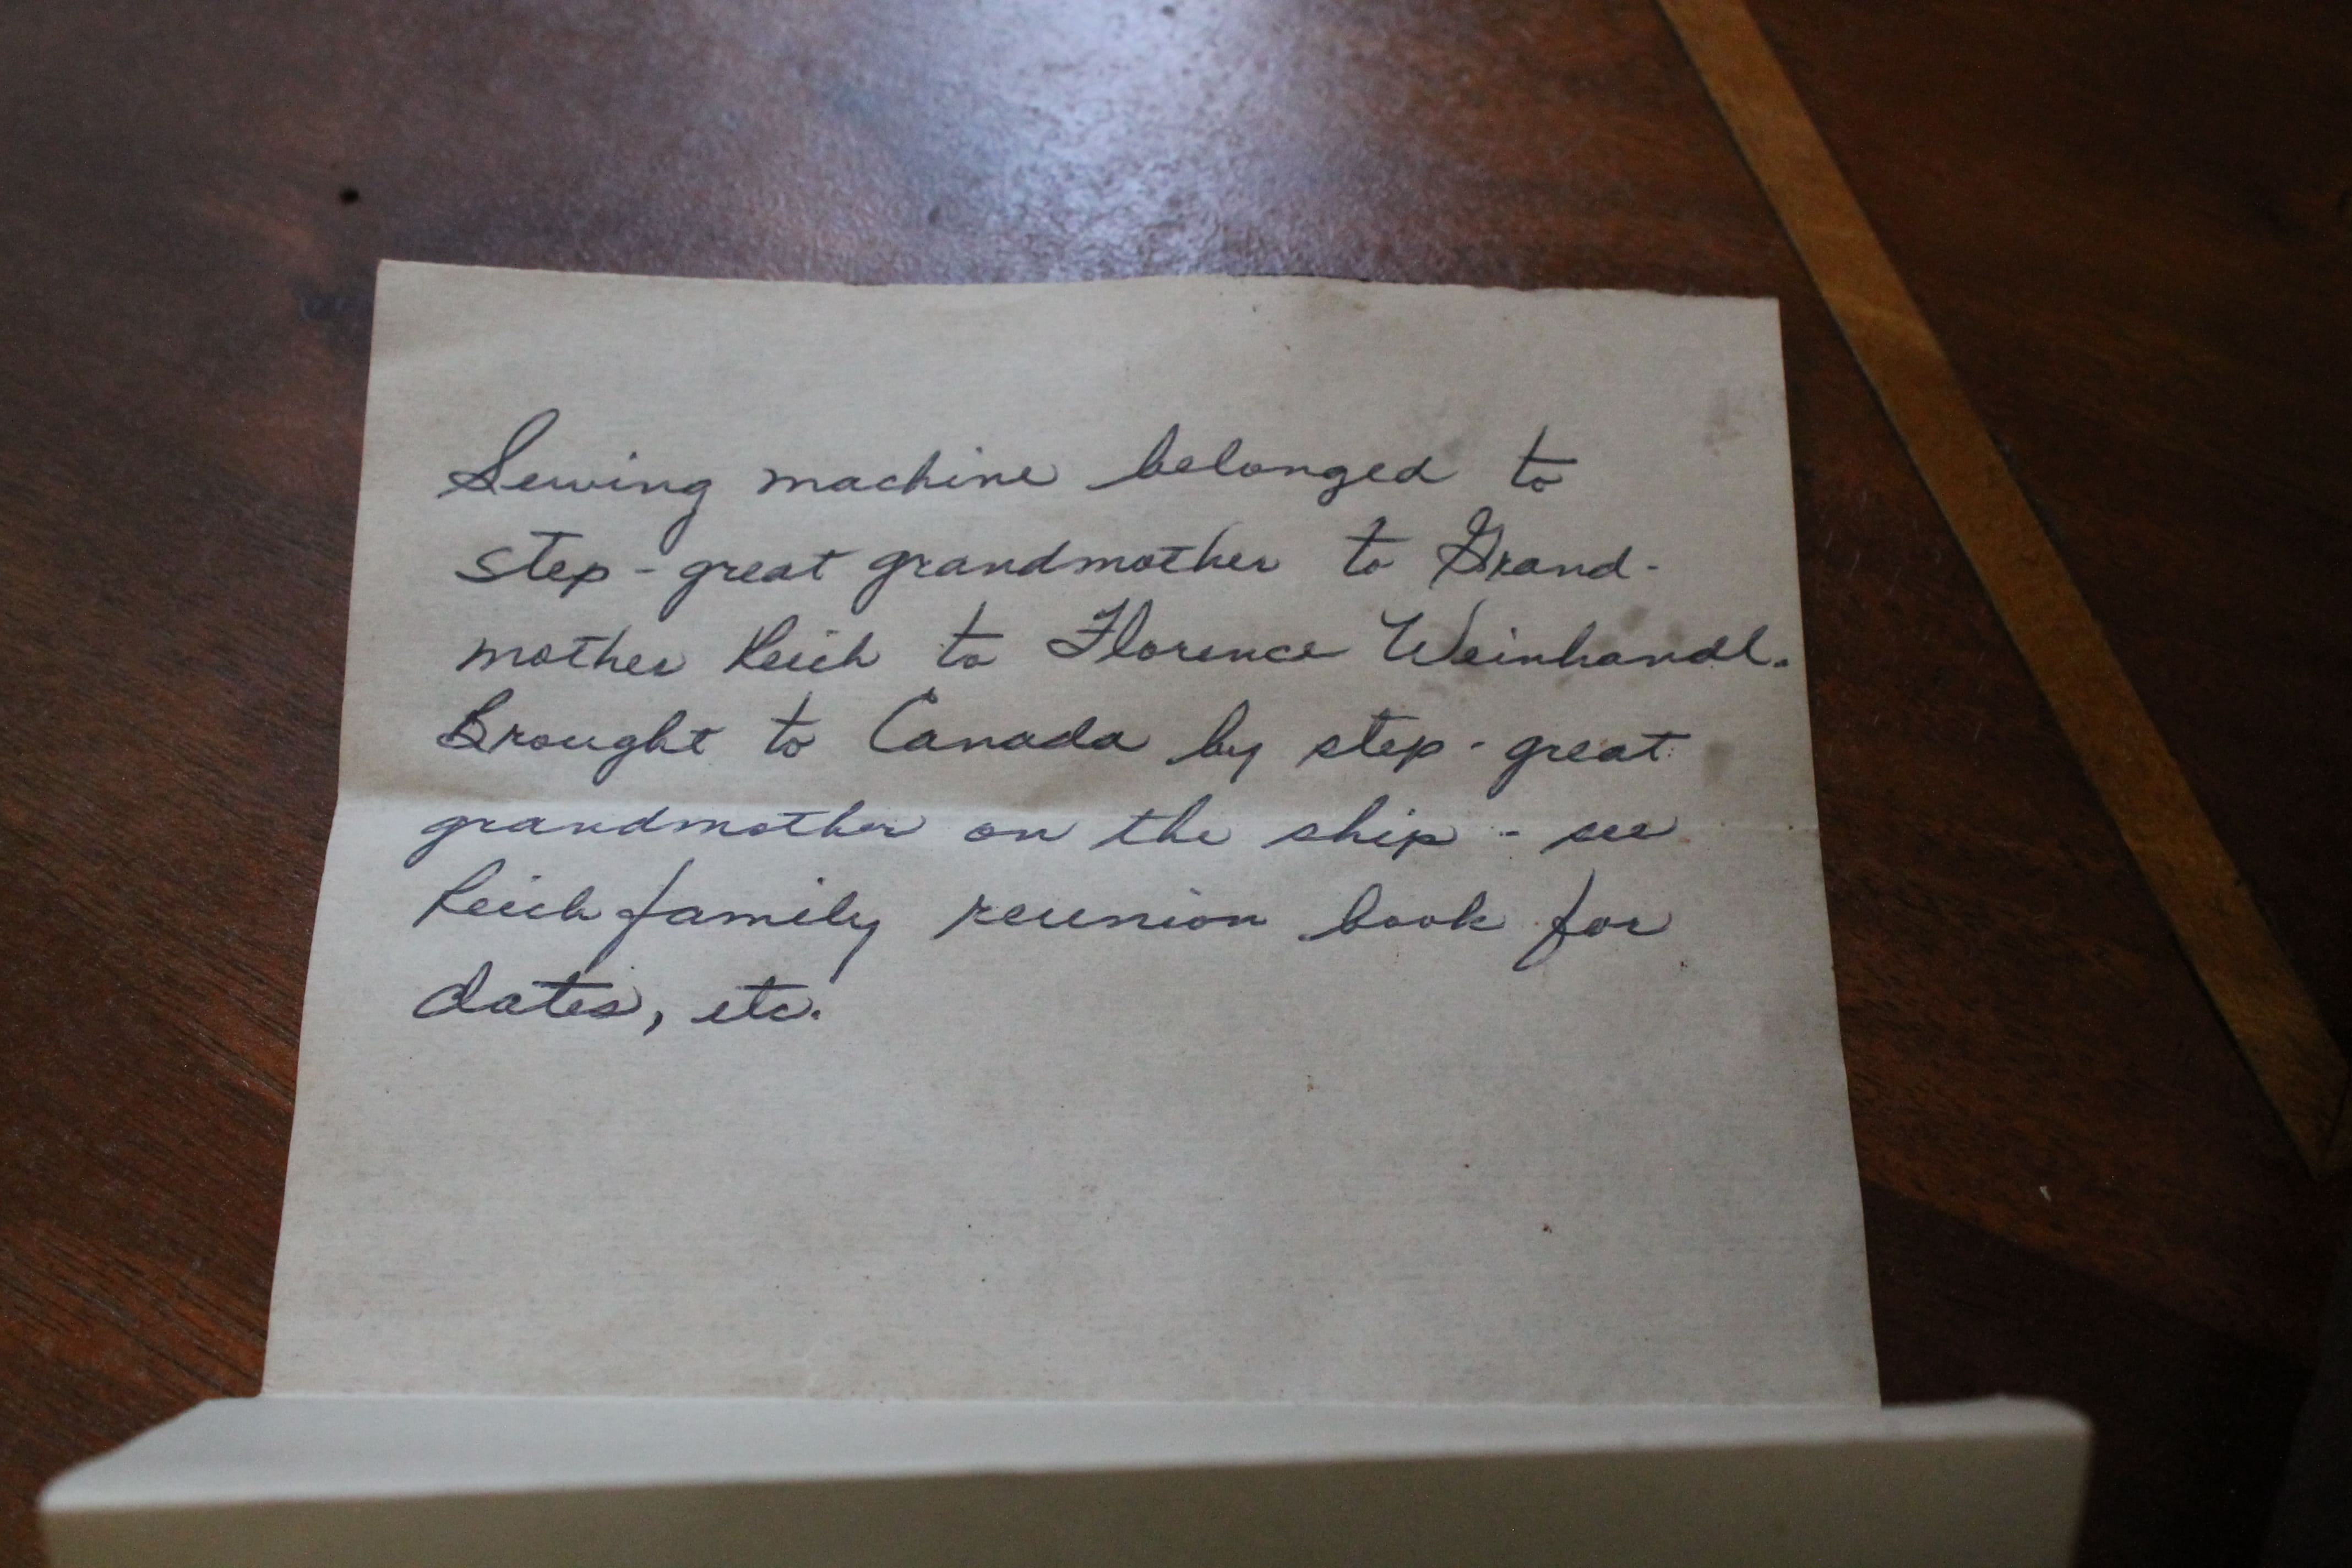 Sewing machine belonged to
step-great grandmother to Grand-
mother Reich to Florence Weinhandl.
Brought to Canada by step-great
grandmother on the ship - see
Reich family reunion book for
dates, etc.